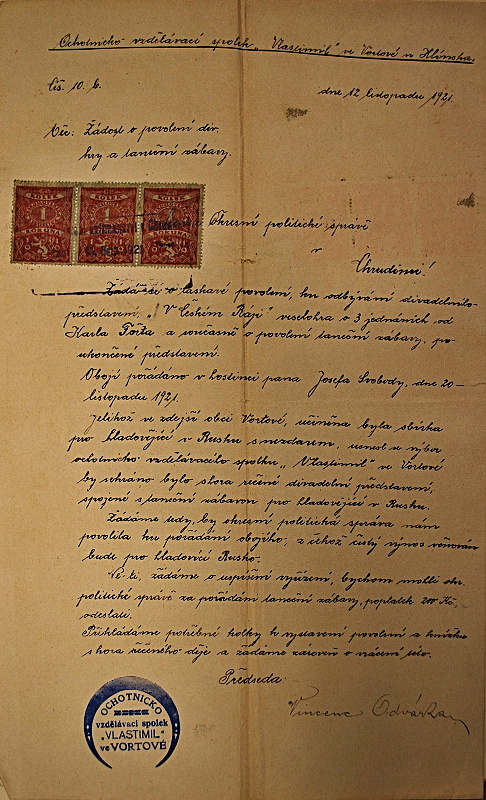 Ochotnicko vzdělávací spolek „Vlastimil" ve Vortové u Hlinska.
Čís. 10. b.
dne 12 listopadu 1921.
Věc: Žádost o povolení div.
hry a taneční zábavy.
KOLEK KOLEK KOLEK
1 1 1
KORUNA KORUNA KORUNA
Okresní politické správě
v
Chrudimi!
Žádá se o laskavé povolení, ku odbývání divadelního
představení, „V Českém Ráji" veselohra o 3 jednáních od
Karla a současně o povolení taneční zábavy, po
ukončené představení.
Obojí pořádáno v hostinci pana Josefa Svobody, dne 20-
listopadu 1921.
Jelikož ve zdejší obci Vortové, učiněna byla sbírka
pro hladovějící v Rusku s nezdarem, usnesl se výbor
ochotnicko vzdělávacího spolku „Vlastimil" ve Vortové
by sehráno bylo shora řečené divadelní představení,
spojené s taneční zábavou pro hladovějící v Rusku.
Žádáme tedy, by okresní politická správa nám
povolila ku pořádání obojího, z čehož čistý výnos věnován
bude pro hladovící Rusko.
žádáme o uspíšení vyřízení, bychom mohli okr.
politické správě za pořádání taneční zábavy, poplatek 200 Kč,
odeslati.
Přikládáme potřebné kolky k vystavení povolení a knížku
shora řečeného děje a žádáme zároveň o vrácení
Předseda:
Vincenc Odvárka
OCHOTNICKO
vzdělávací spolek
„VLASTIMIL"
ve VORTOVÉ